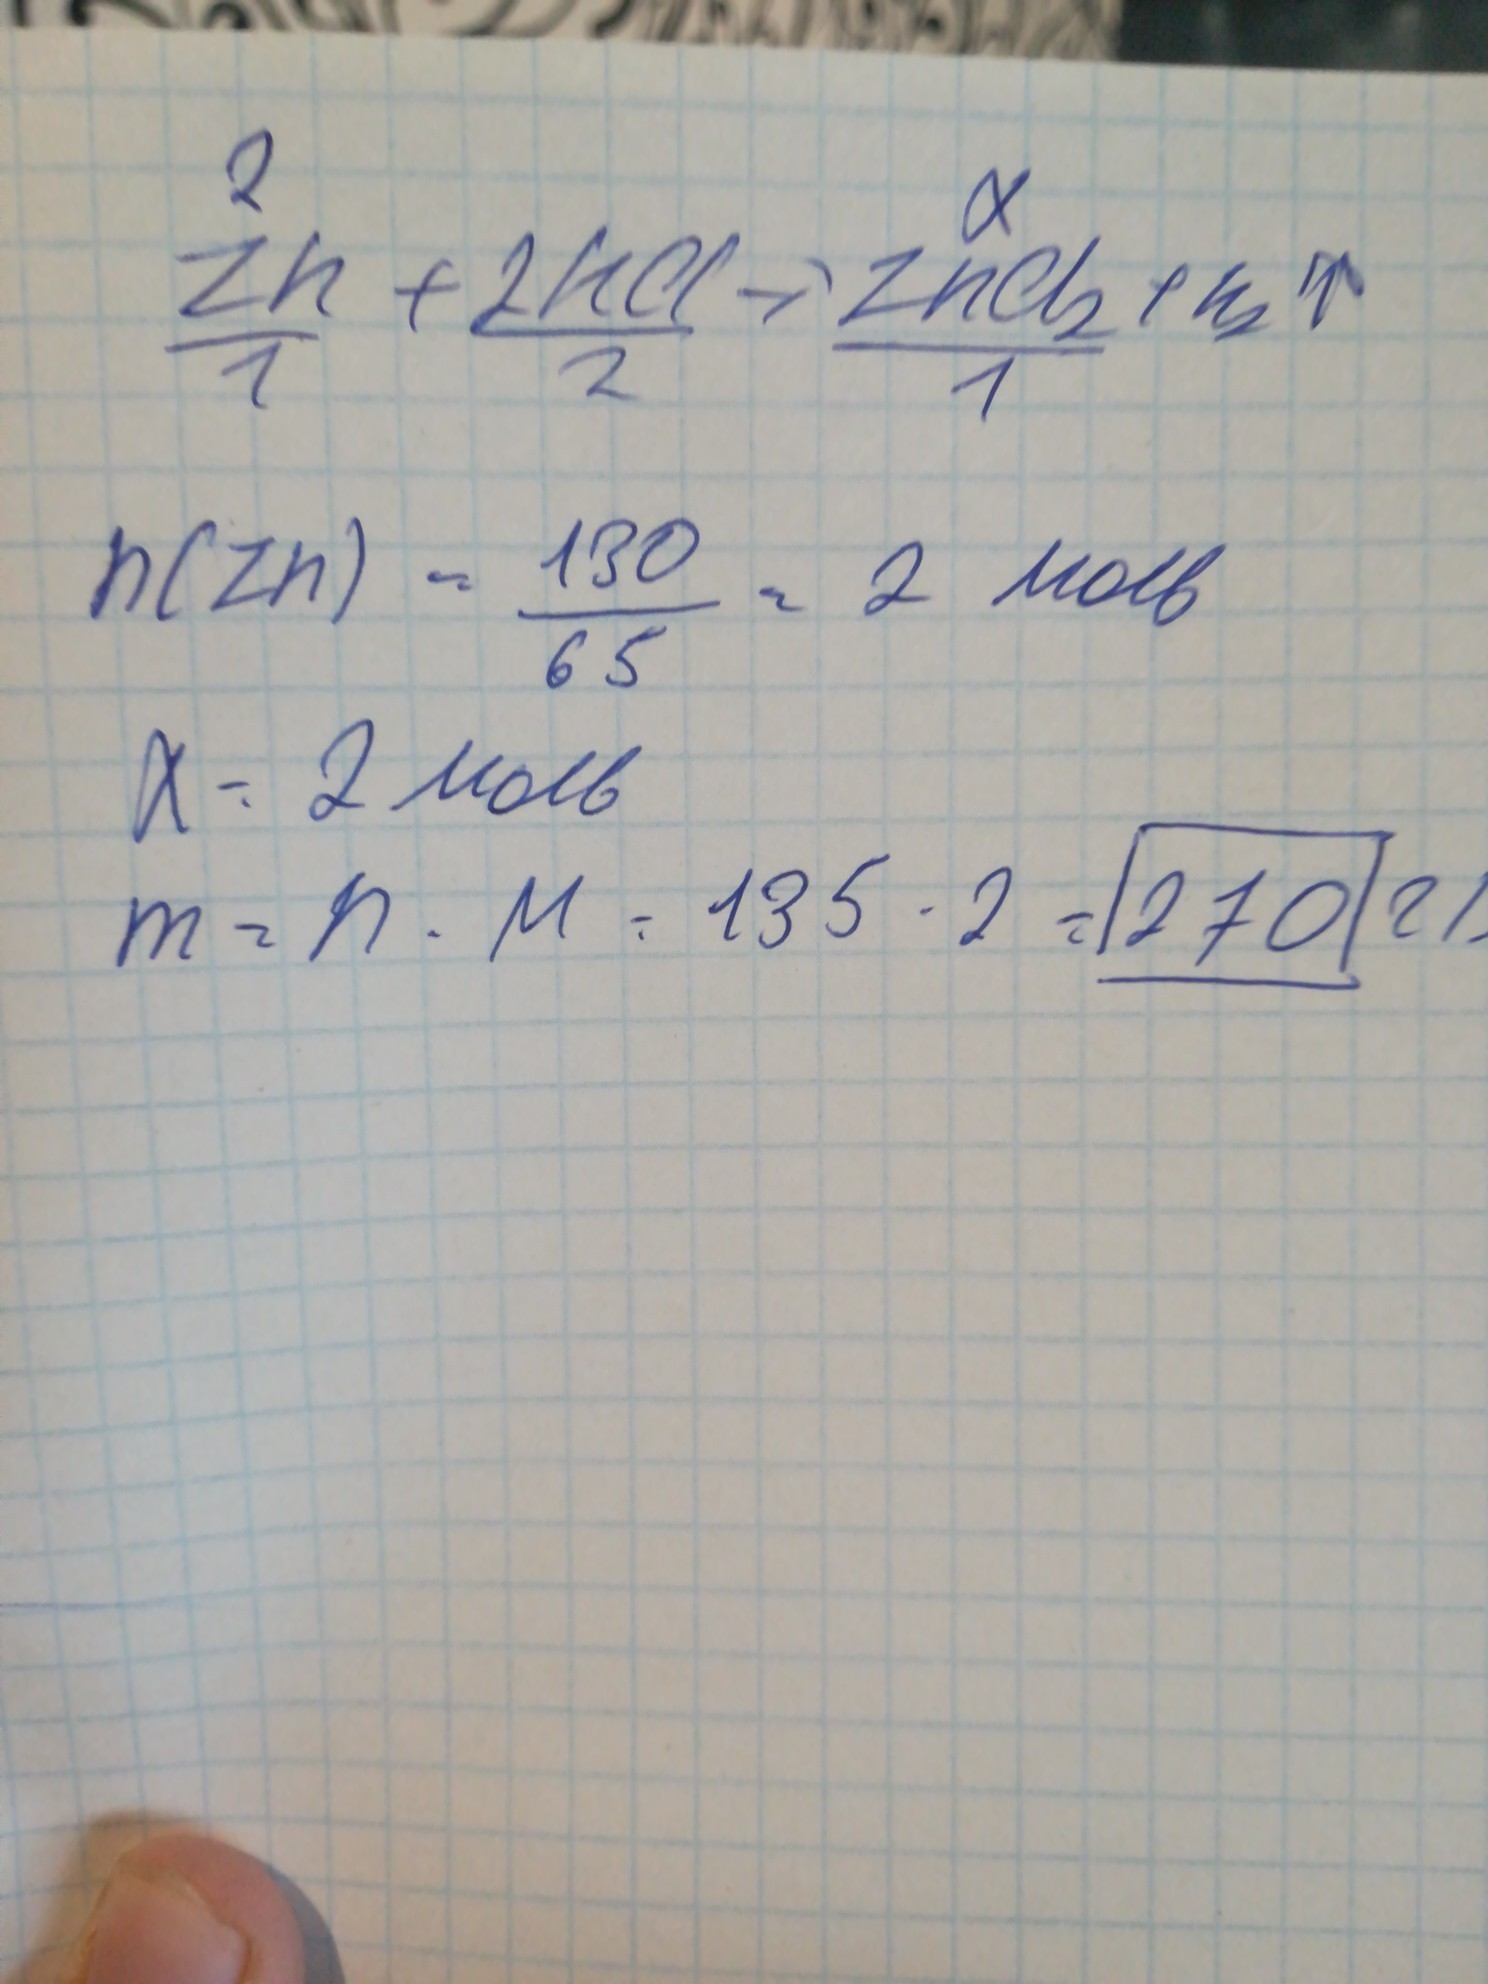 2 x
Zn + 2HCl → ZnCl₂ + H₂↑
1 2 1
n(Zn) = 130/65 = 2 моль
x = 2 моль
m = n · M = 135 · 2 = 270